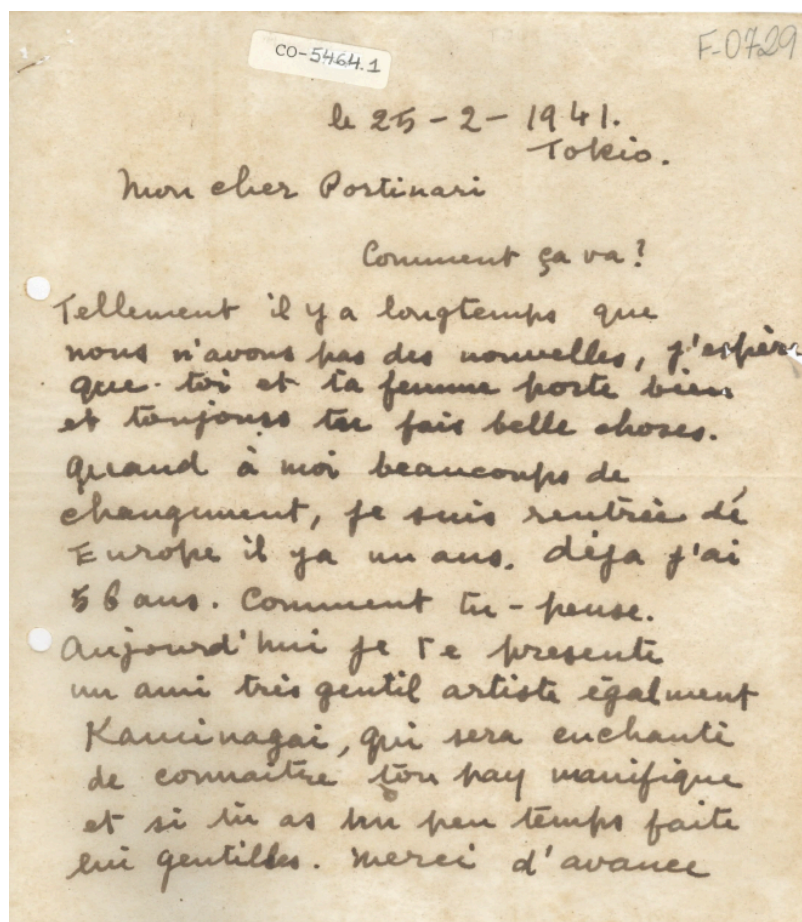 CO-5464.1
F-0729
le 25-2-1941.
Tokio.
Mon cher Portinari
Comment ça va?
Tellement il y a longtemps que
nous n'avons pas des nouvelles, j'espère
que toi et ta femme porte bien
et toujours tu fais belle choses.
Quand à moi beaucoups de
changument, je suis rentrée dé
Europe il ya un ans. déja j'ai
56 ans. Comment tu-pense.
Aujourd'hui je te presente
un ami très gentil artiste égalment
Kaminagai, qui sera enchanté
de connaitre ton pay manifique
et si tu as un peu temps faite
lui gentilles. Merci d'avance